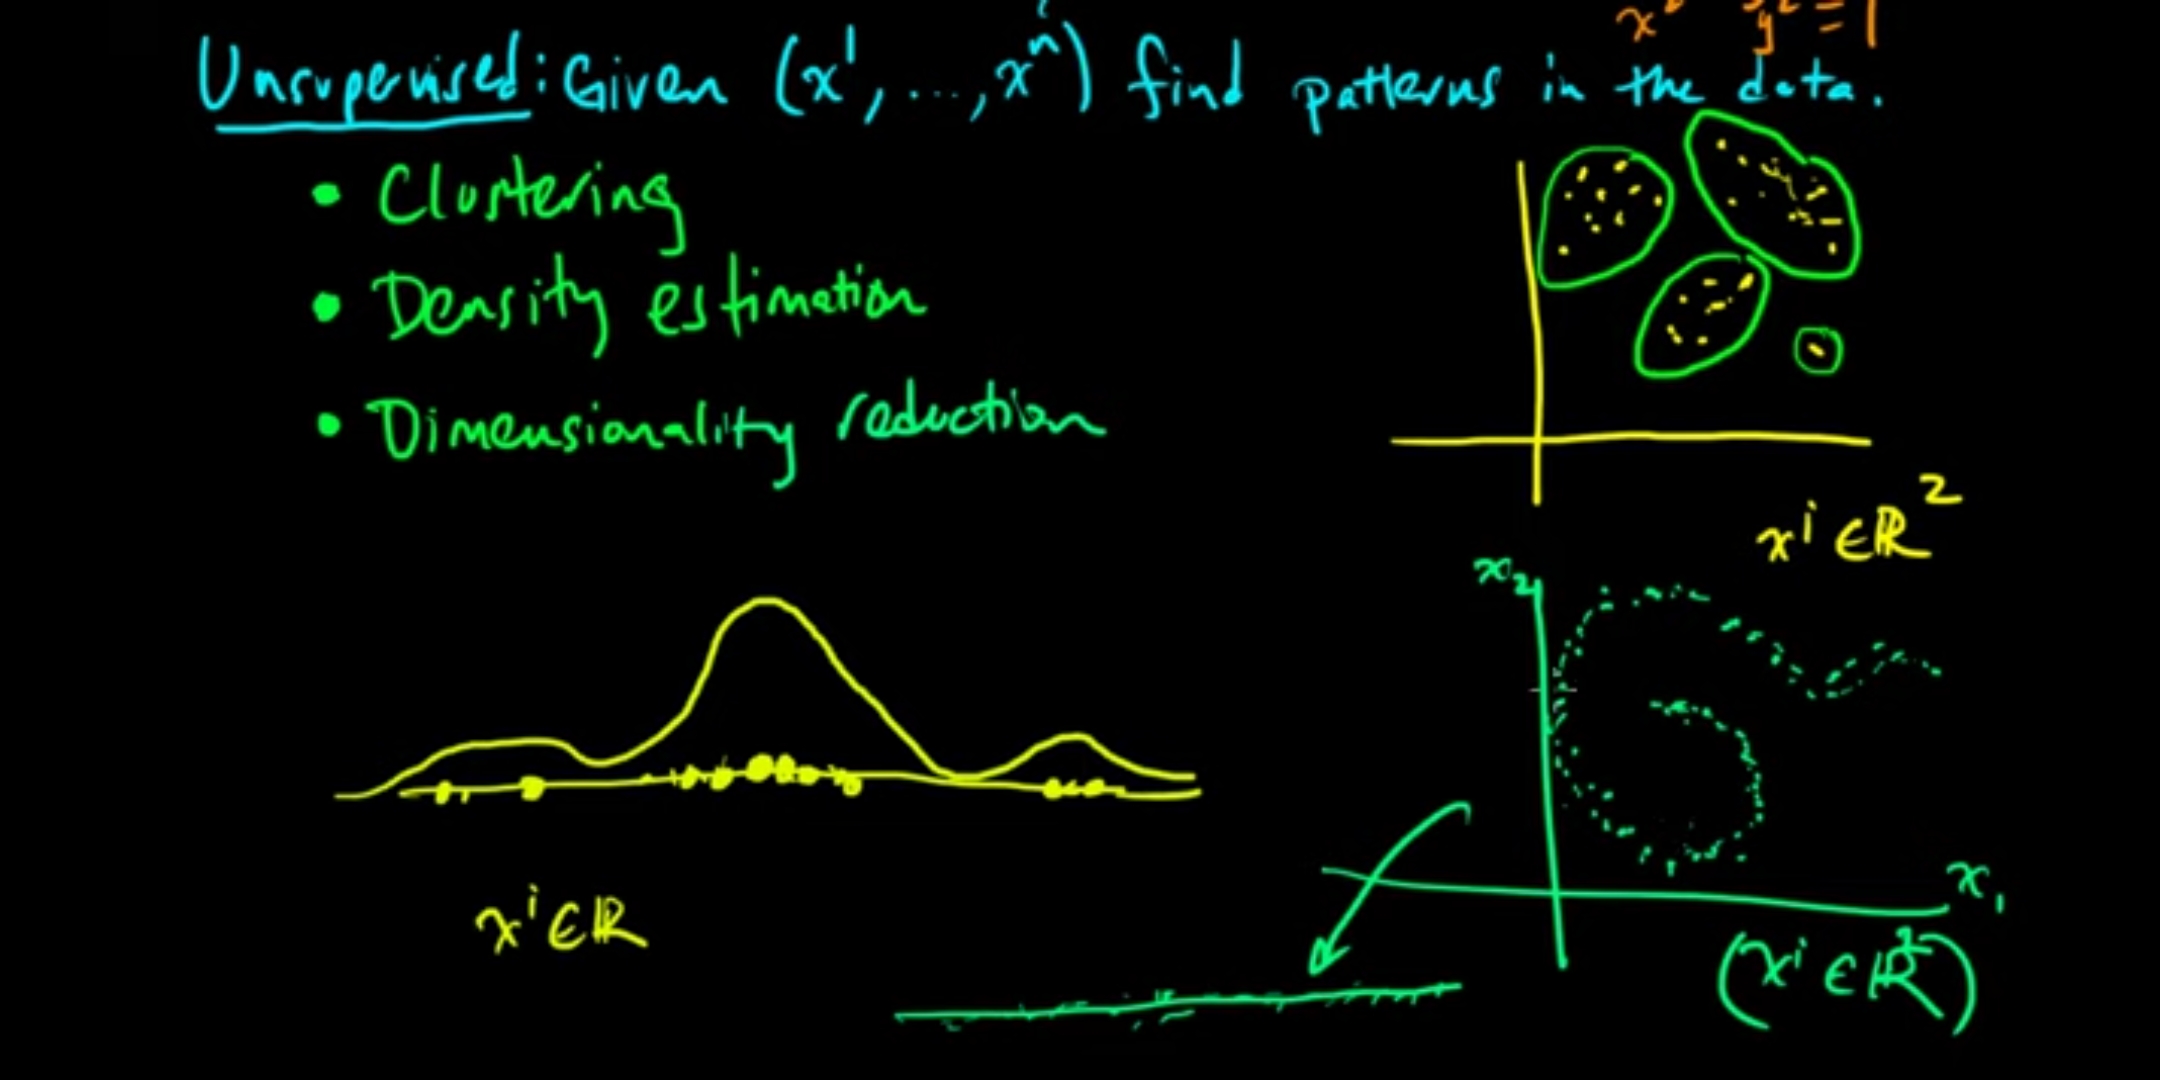 x² y² = 1
Unsupervised: Given (x¹, ..., xⁿ) find patterns in the data.
• Clustering
• Density estimation
• Dimensionality reduction
xⁱ ∈ ℝ²
x₂
x₁
xⁱ ∈ ℝ
(xⁱ ∈ ℝ²)